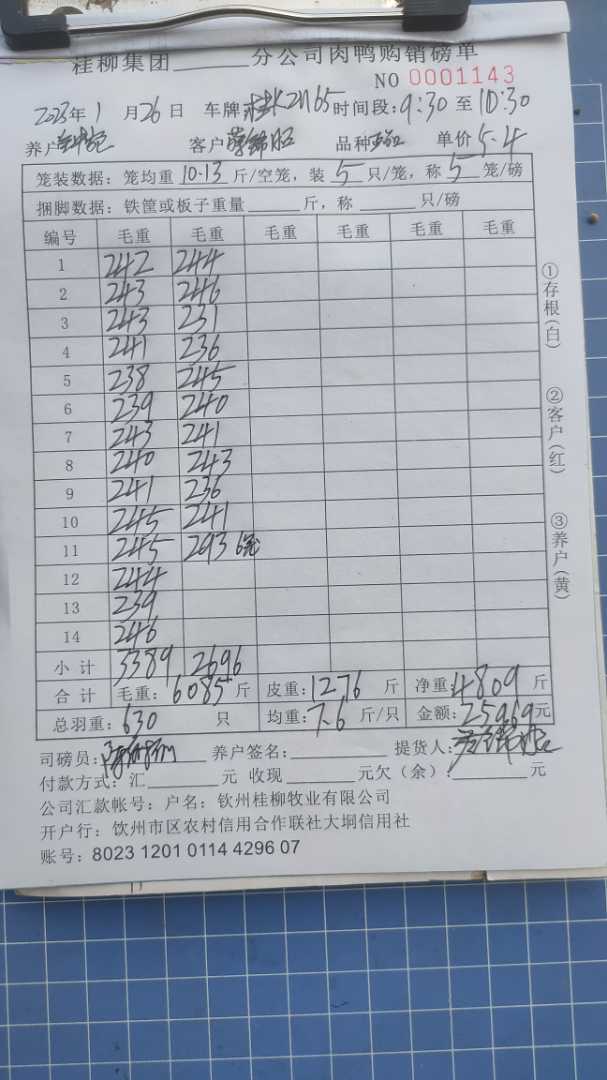 桂柳集团______分公司肉鸭购销磅单
NO 0001143
2023年1月26日 车牌 2N165 时间段:9:30至10:30
养户 客户 品种 单价5.4
笼装数据:笼均重10.13斤/空笼,装5只/笼,称5笼/磅
捆脚数据:铁筐或板子重量______斤,称______只/磅
编号 毛重 毛重 毛重 毛重 毛重 毛重
1 242 244
2 243 246
3 243 231
4 241 236
5 238 245
6 239 240
7 243 241
8 240 243
9 241 236
10 245 241
11 245 293 6笼
12 244
13 239
14 246
小计 3389 2696
合计 毛重:6085斤 皮重:1276斤 净重:4809斤
总羽重:630只 均重:7.6斤/只 金额:25969元
司磅员: 养户签名:______ 提货人:
付款方式:汇______元 收现______元欠(余):______元
公司汇款帐号:户名:钦州桂柳牧业有限公司
开户行:钦州市区农村信用合作联社大垌信用社
账号:8023 1201 0114 4296 07
①存根(白)
②客户(红)
③养户(黄)